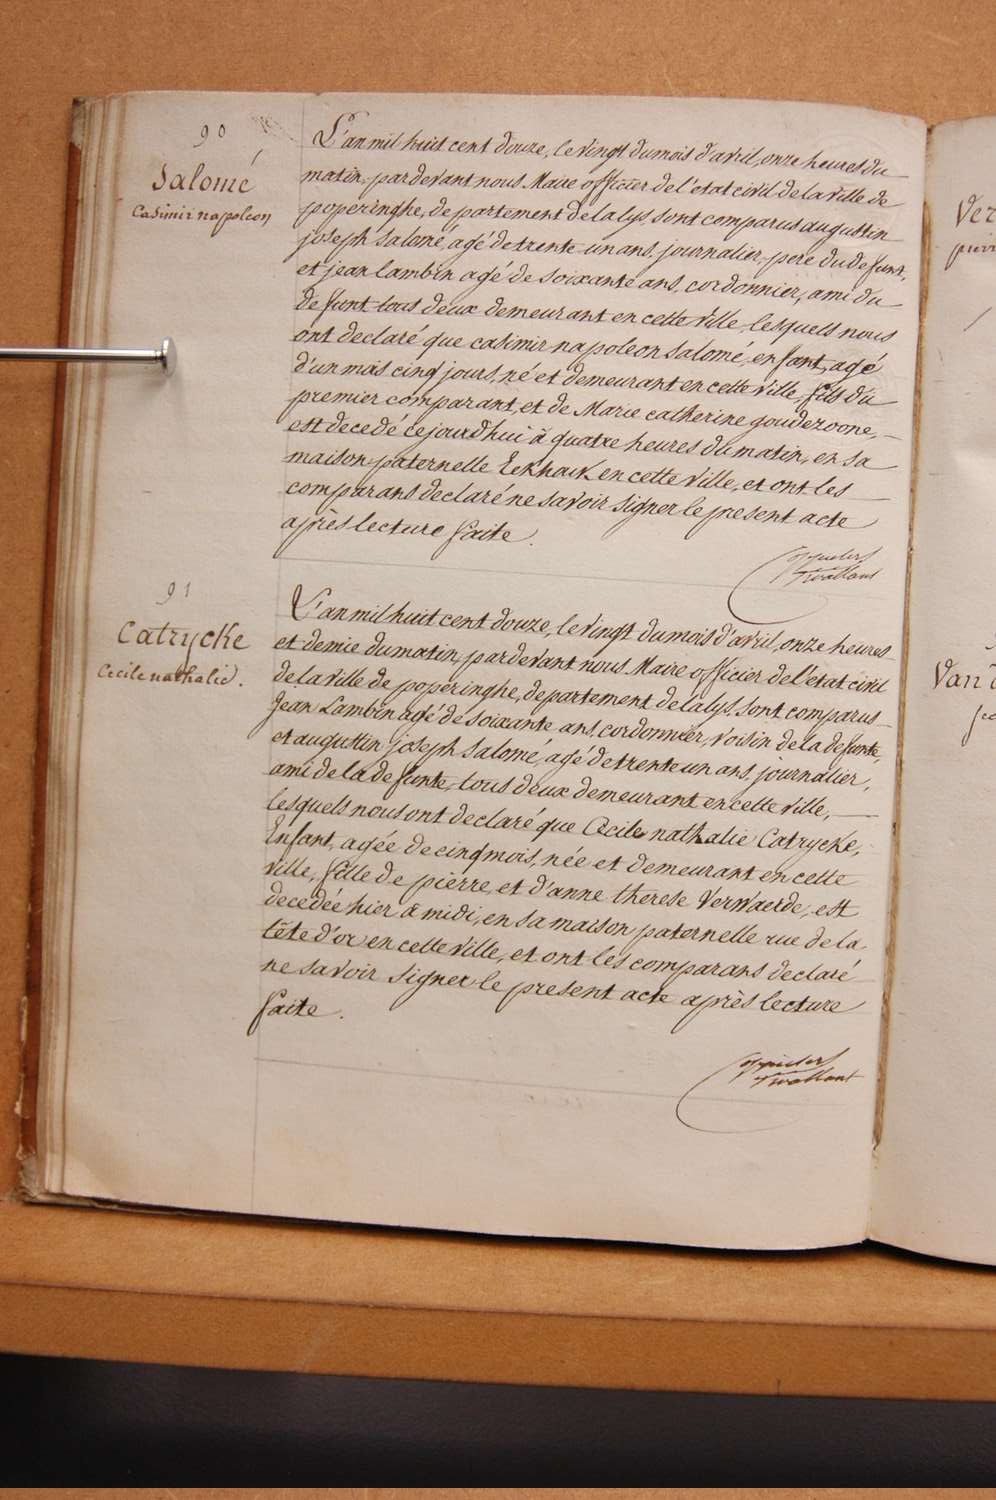 90
Salomé
Casimir napoleon
L'an mil huit cent douze, le vingt du mois d'avril, onze heures du
matin, pardevant nous Maire officier de l'etat civil de la ville de
poperinghe, departement de la lys, sont comparus augustin
joseph Salomé, agé de trente un ans, journalier, pere du defunt,
et jean lambin agé de soixante ans, cordonnier, ami du
defunt tous deux demeurant en cette ville, lesquels nous
ont declaré que casimir napoleon salomé, enfant, agé
d'un mois cinq jours, né et demeurant en cette ville, fils du
premier comparant, et de Marie catherine goudezoone,
est decedé cejourdhui à quatre heures du matin, en sa
maison paternelle Eekhoek en cette ville, et ont les
comparans declaré ne savoir signer le present acte
après lecture faite.
91
Catrycke
Cecile nathalie.
L'an mil huit cent douze, le vingt du mois d'avril, onze heures
et demie du matin, pardevant nous Maire officier de l'etat civil
de la ville de poperinghe, departement de la lys, sont comparus
Jean Lambin agé de soixante ans, cordonnier, voisin de la defunte,
et augustin joseph Salomé, agé de trente un ans, journalier,
ami de la defunte, tous deux demeurant en cette ville,
lesquels nous ont declaré que Cecile nathalie Catrycke,
Enfant, agée de cinq mois, née et demeurant en cette
ville, fille de pierre, et d'anne therese Verwaerde, est
decedée hier à midi, en sa maison paternelle rue de la
tête d'or en cette ville, et ont les comparans declaré
ne savoir signer le present acte après lecture
faite.
Van